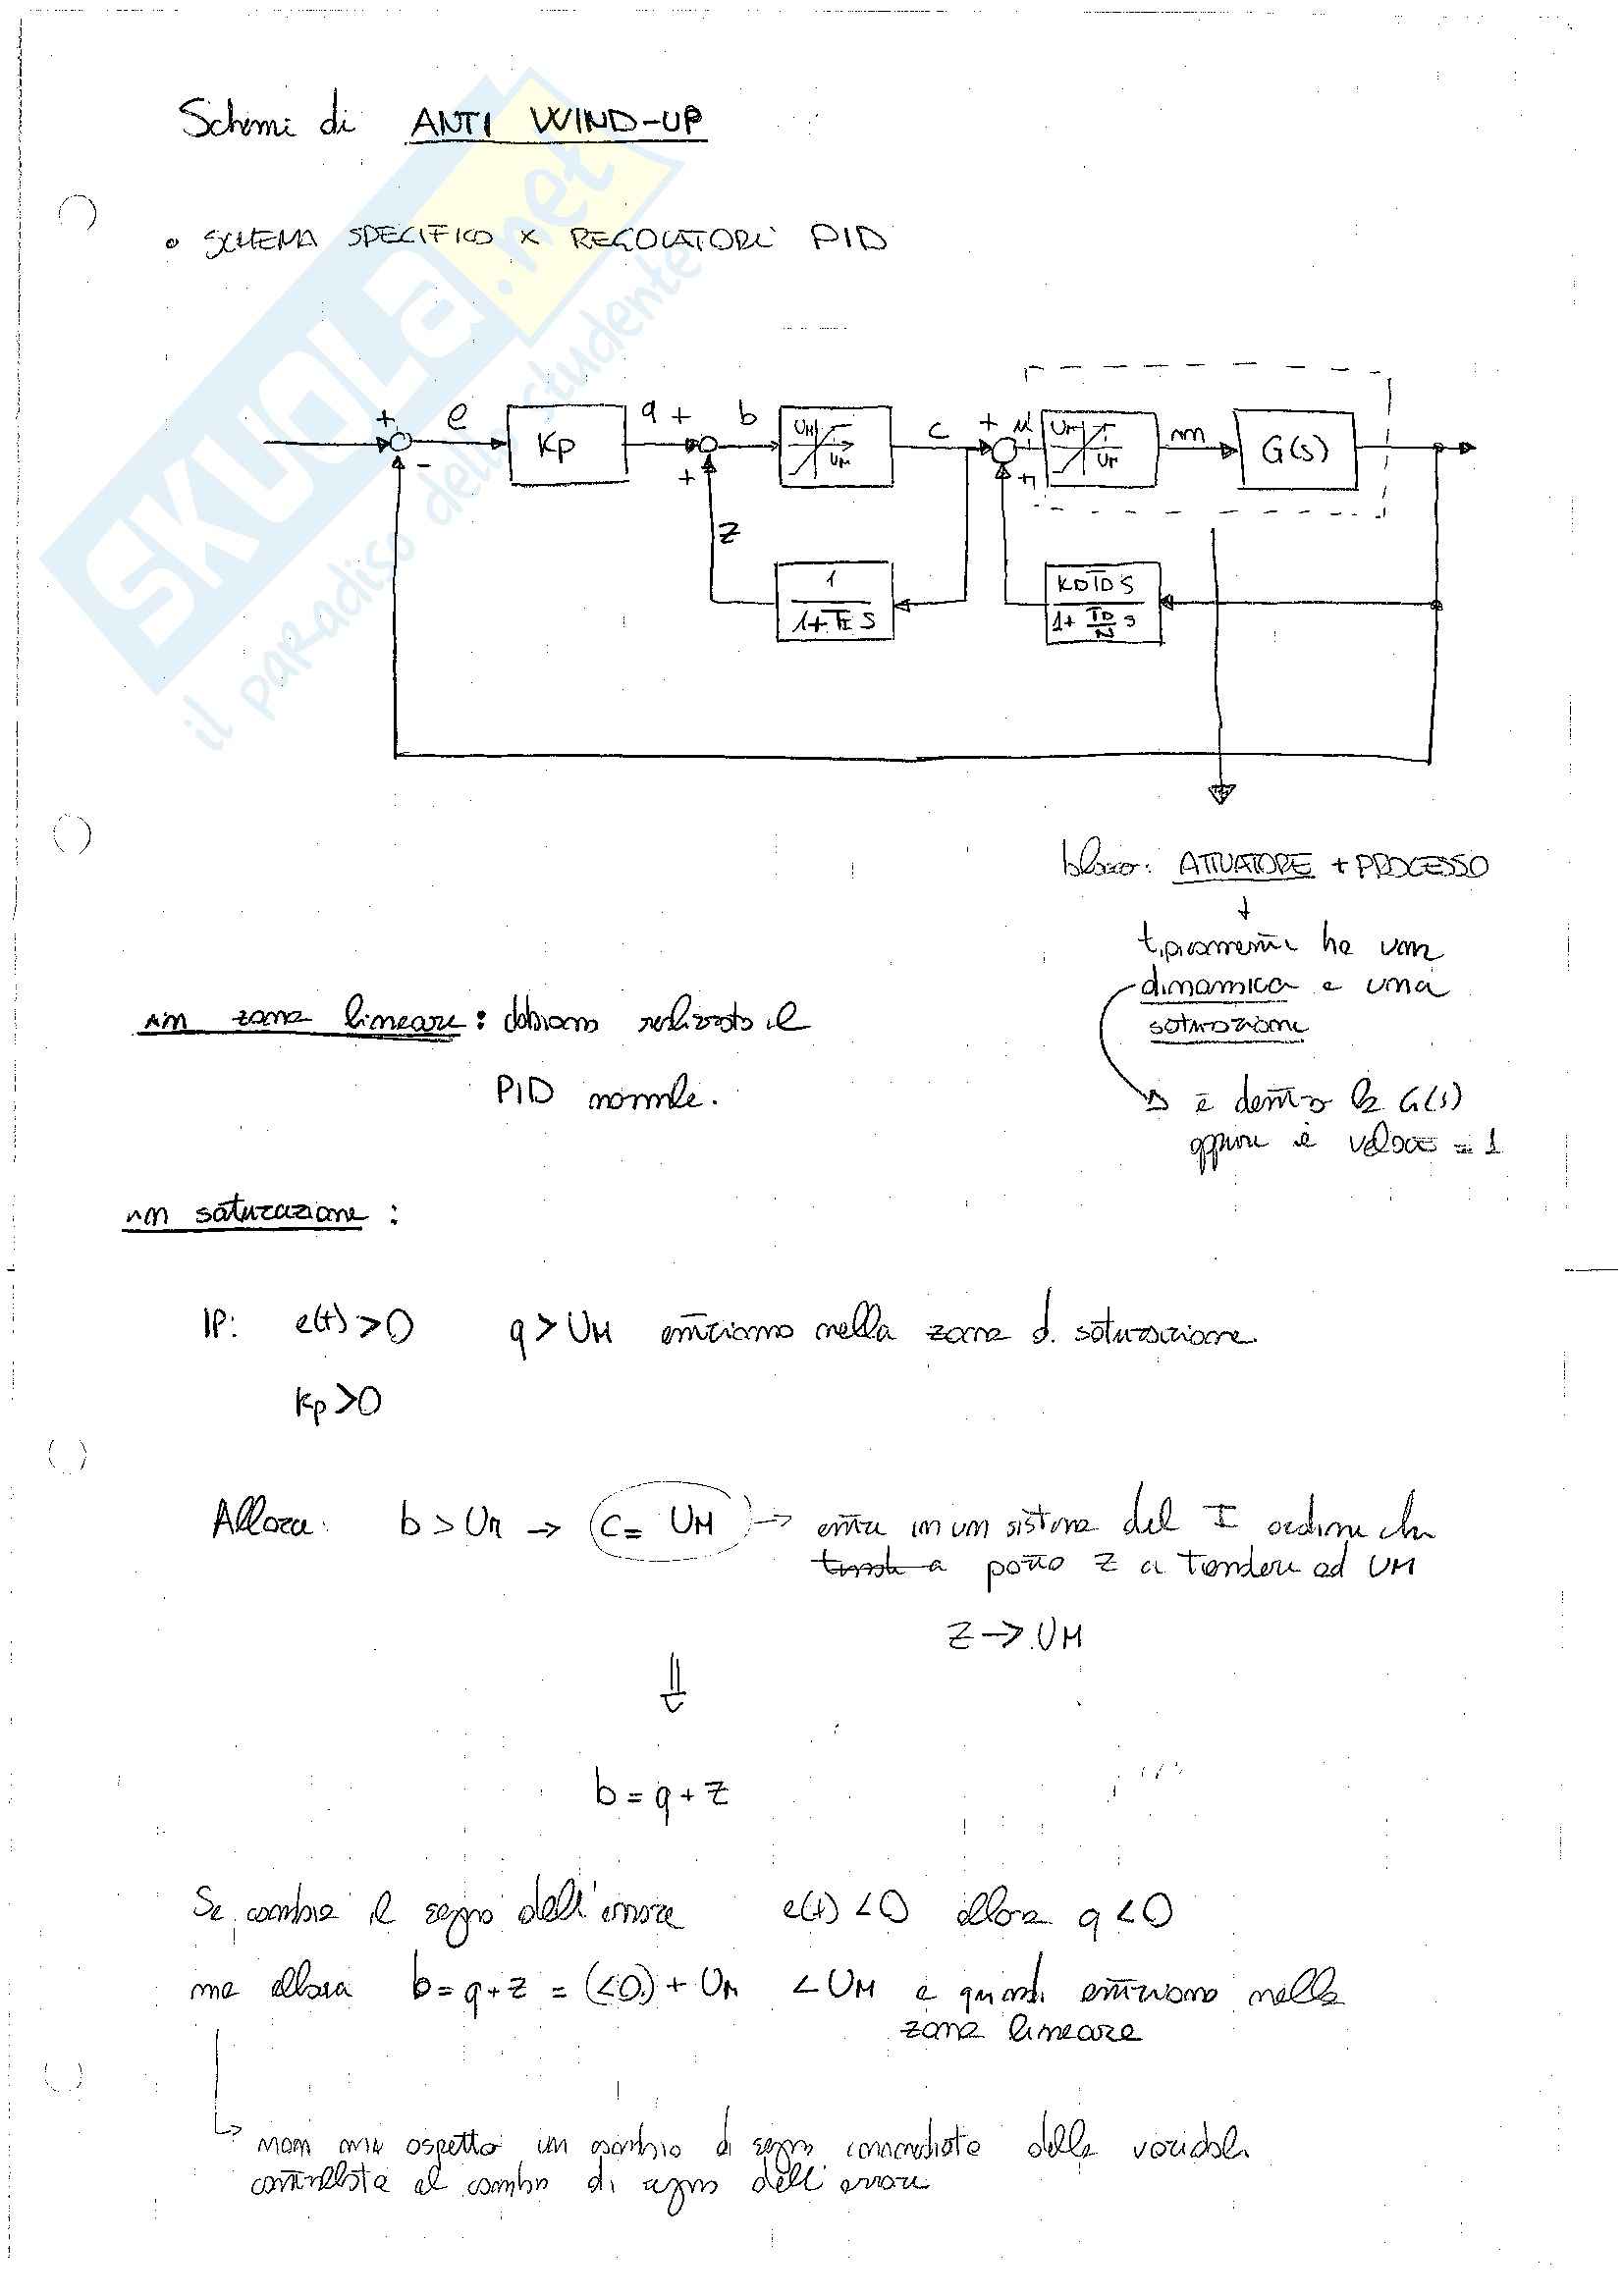 Schemi di ANTI WIND-UP
• SCHEMA SPECIFICO X REGOLATORI PID
SKUOLA.net
il paradiso dello studente
+ e Kp q + b UM UM c + u UM UM m G(s)
- + z +
1
1+TI S
KD TD S
1+ TD/N s
blocco: ATTUATORE + PROCESSO
tipicamente ha una
dinamica e una
saturazione
in zona lineare: abbiamo realizzato il
PID normale.
è dentro la G(s)
oppure è veloce = 1
in saturazione:
IP: e(t)>0 q > UM entriamo nella zona di saturazione
Kp>0
Allora: b > UM → c = UM → entra in un sistema del I ordine che
tende a porta z a tendere ad UM
z → UM
⇓
b = q + z
Se cambia il segno dell'errore e(t) <0 allora q <0
ma allora b = q + z = (<0) + UM < UM e quindi entriamo nella
zona lineare
↳ non mi aspetto un cambio di segno immediato della variabile
controllata al cambio di segno dell'errore